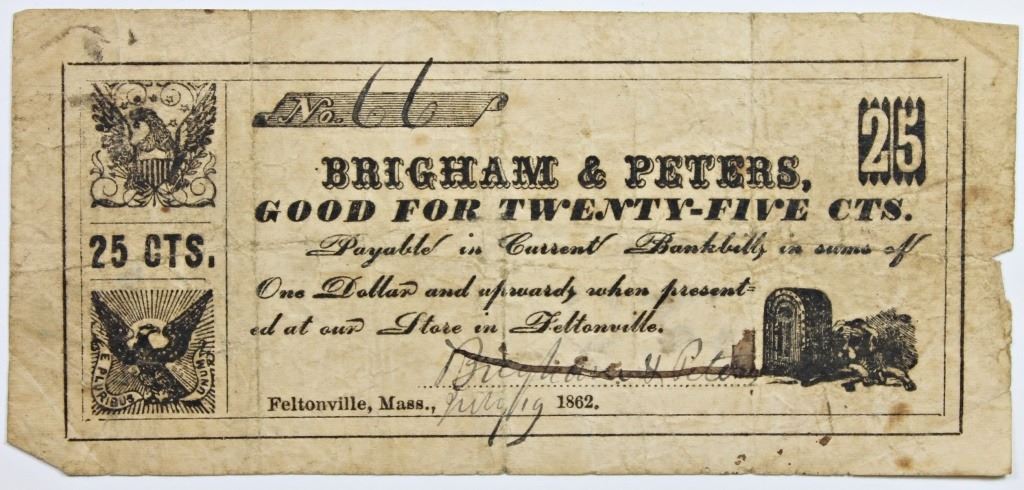 No. 66
25
BRIGHAM & PETERS,
GOOD FOR TWENTY-FIVE CTS.
25 CTS.
Payable in Current Bankbills in sums of
One Dollar and upwards when present=
ed at our Store in Feltonville.
Brigham & Peters
E PLURIBUS UNUM
Feltonville, Mass., July 19 1862.